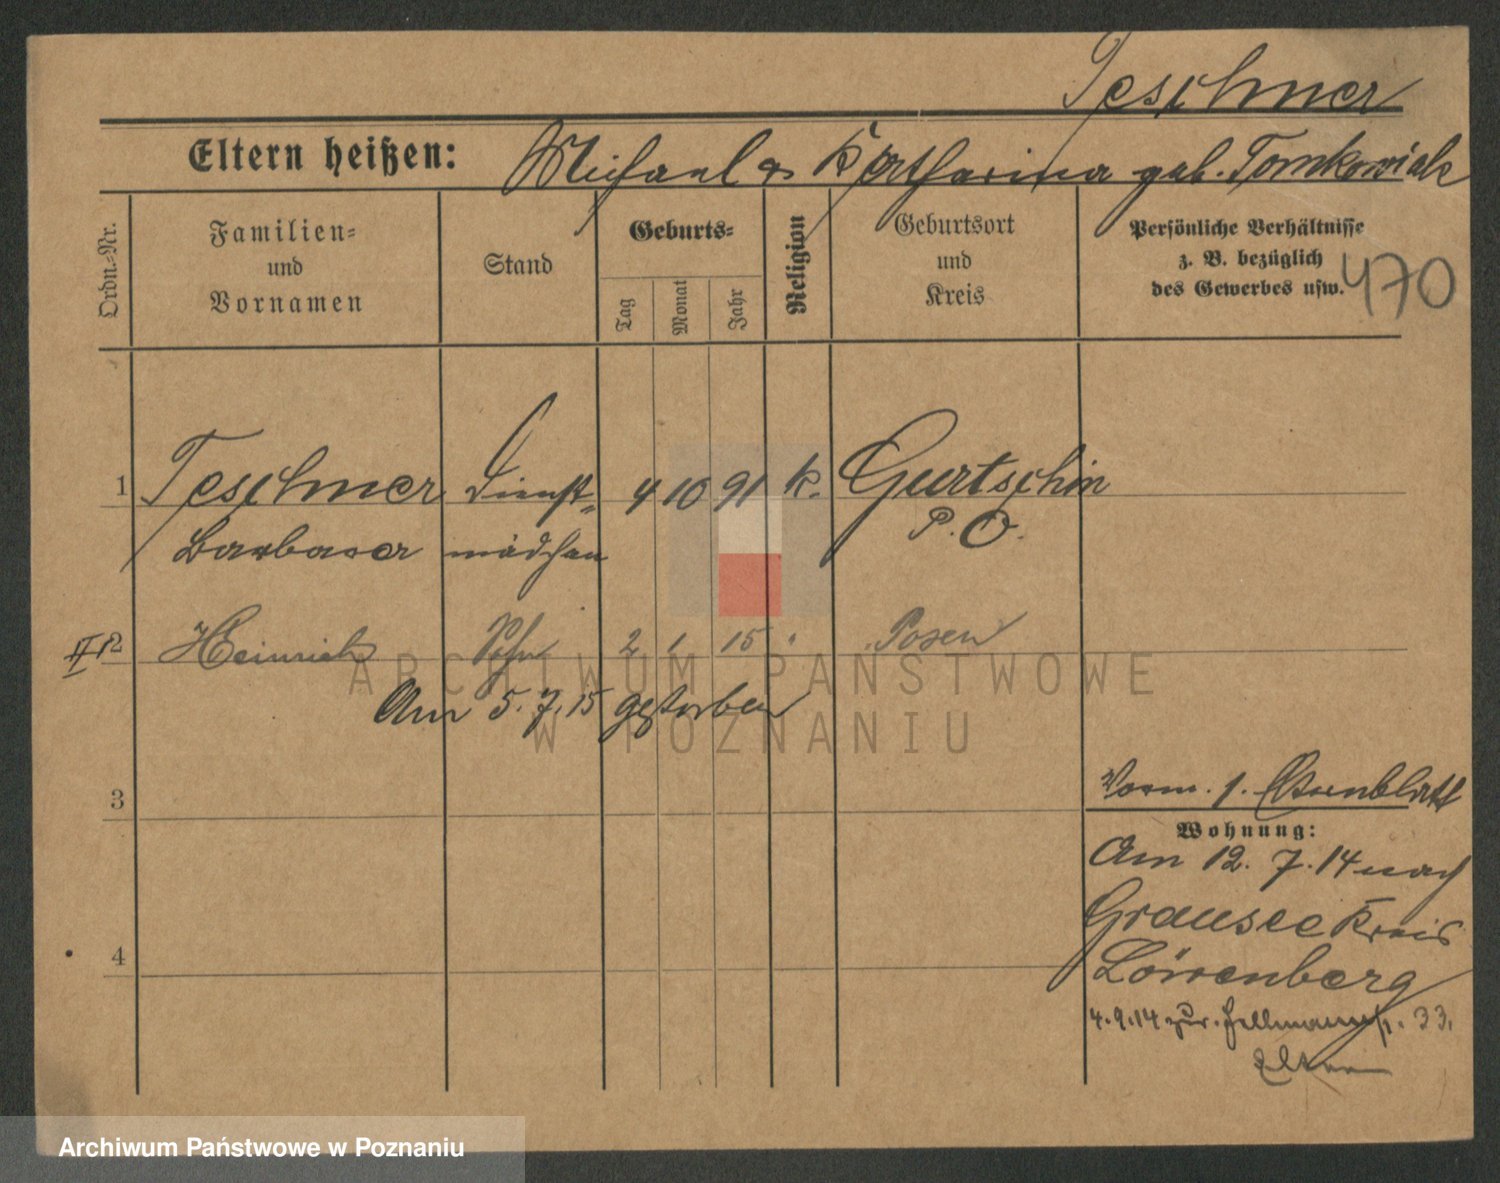 Teschner
Eltern heißen: Michael & Katharina geb. Tomkowiak
Ordn.-Nr.
Familien- und Vornamen
Stand
Geburts-
Tag
Monat
Jahr
Religion
Geburtsort und Kreis
Persönliche Verhältnisse
z. B. bezüglich
des Gewerbes usw.
470
1 Teschner Dienst- 4 10 91 k. Gurtschin
Barbara mädchen P. O.
2 Heinrich Sohn 2 1 15 Posen
Am 5. 7. 15 gestorben
3
Vorm. 1.
Wohnung:
Am 12. 7. 14 nach
Gransee Kreis
4
Löwenberg
4. 9. 14 zur. 33.
Eltern
ARCHIWUM PAŃSTWOWE
W POZNANIU
Archiwum Państwowe w Poznaniu